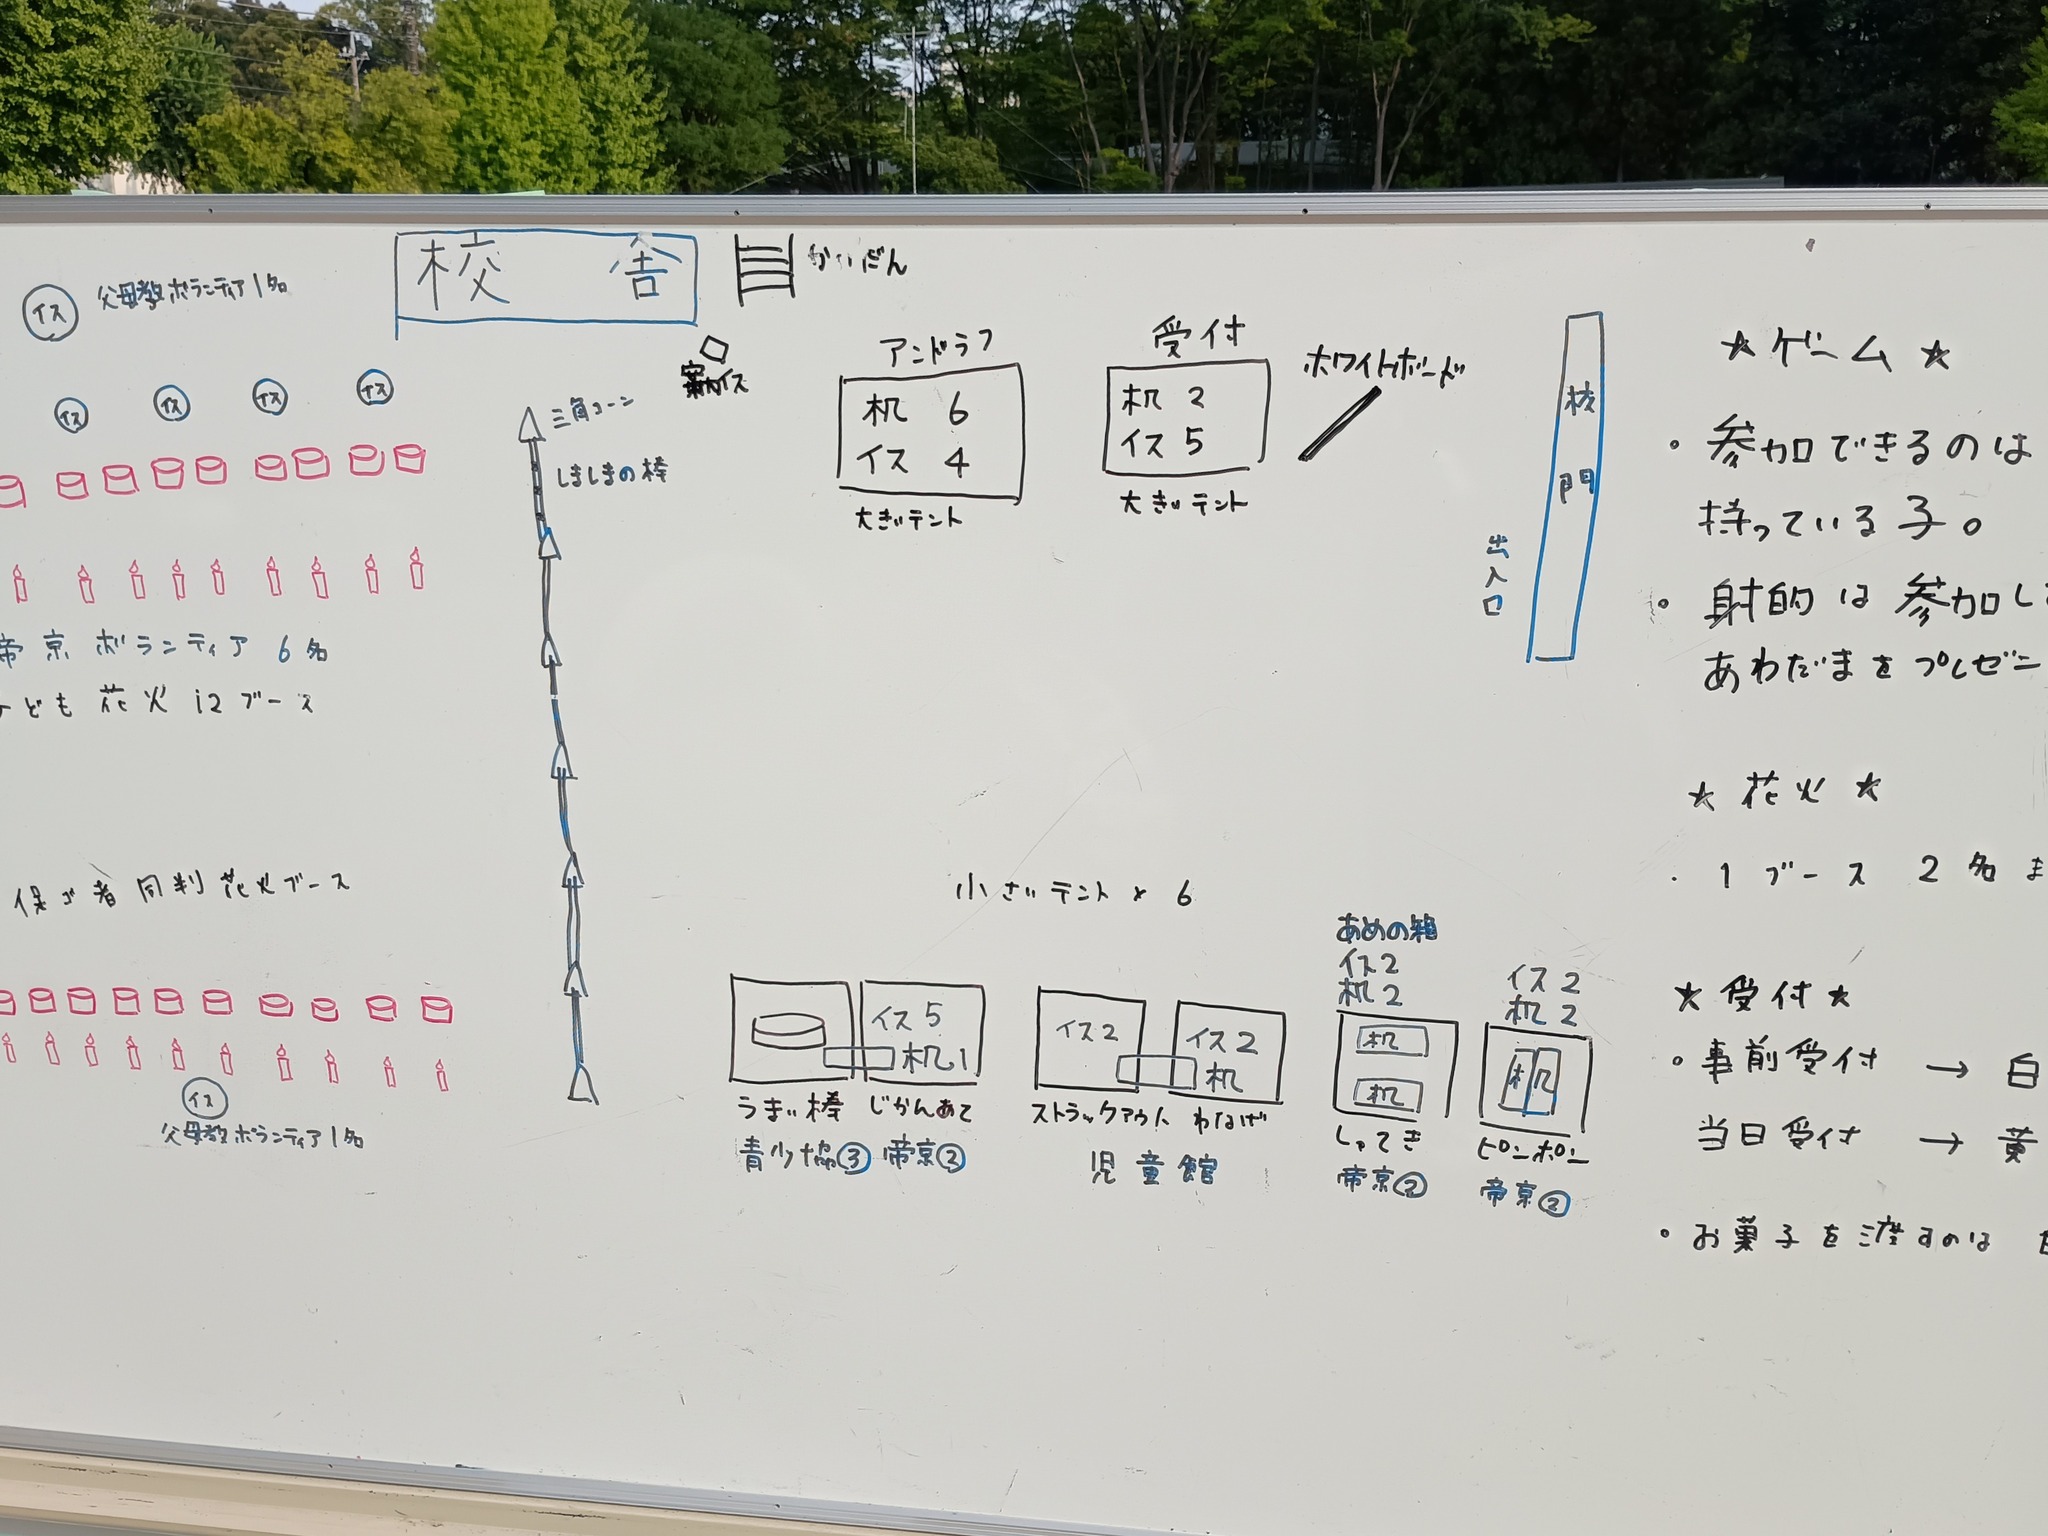 校舎
かいだん
イス
父母教ボランティア1名
イス
イス
イス
イス
三角コーン
しましまの棒
イス
アンドラフ
机 6
イス 4
大きいテント
受付
机 2
イス 5
大きいテント
ホワイトボード
校門
出入口
帝京ボランティア 6名
ども花火 12ブース
保ゴ者同判花火ブース
イス
父母教ボランティア1名
小さいテント × 6
イス5
机1
うまい棒
じかんあて
青少協③
帝京②
イス2
イス2
机
ストラックアウト
わなげ
児童館
あめの箱
イス2
机2
机
机
しゃてき
帝京②
イス2
机2
机
ピンポン
帝京②
★ゲーム★
・参加できるのは
持っている子。
・射的は参加し
あわだまをプレゼン
★花火★
・1ブース 2名ま
★受付★
・事前受付 → 白
当日受付 → 黄
・お菓子を渡すのは